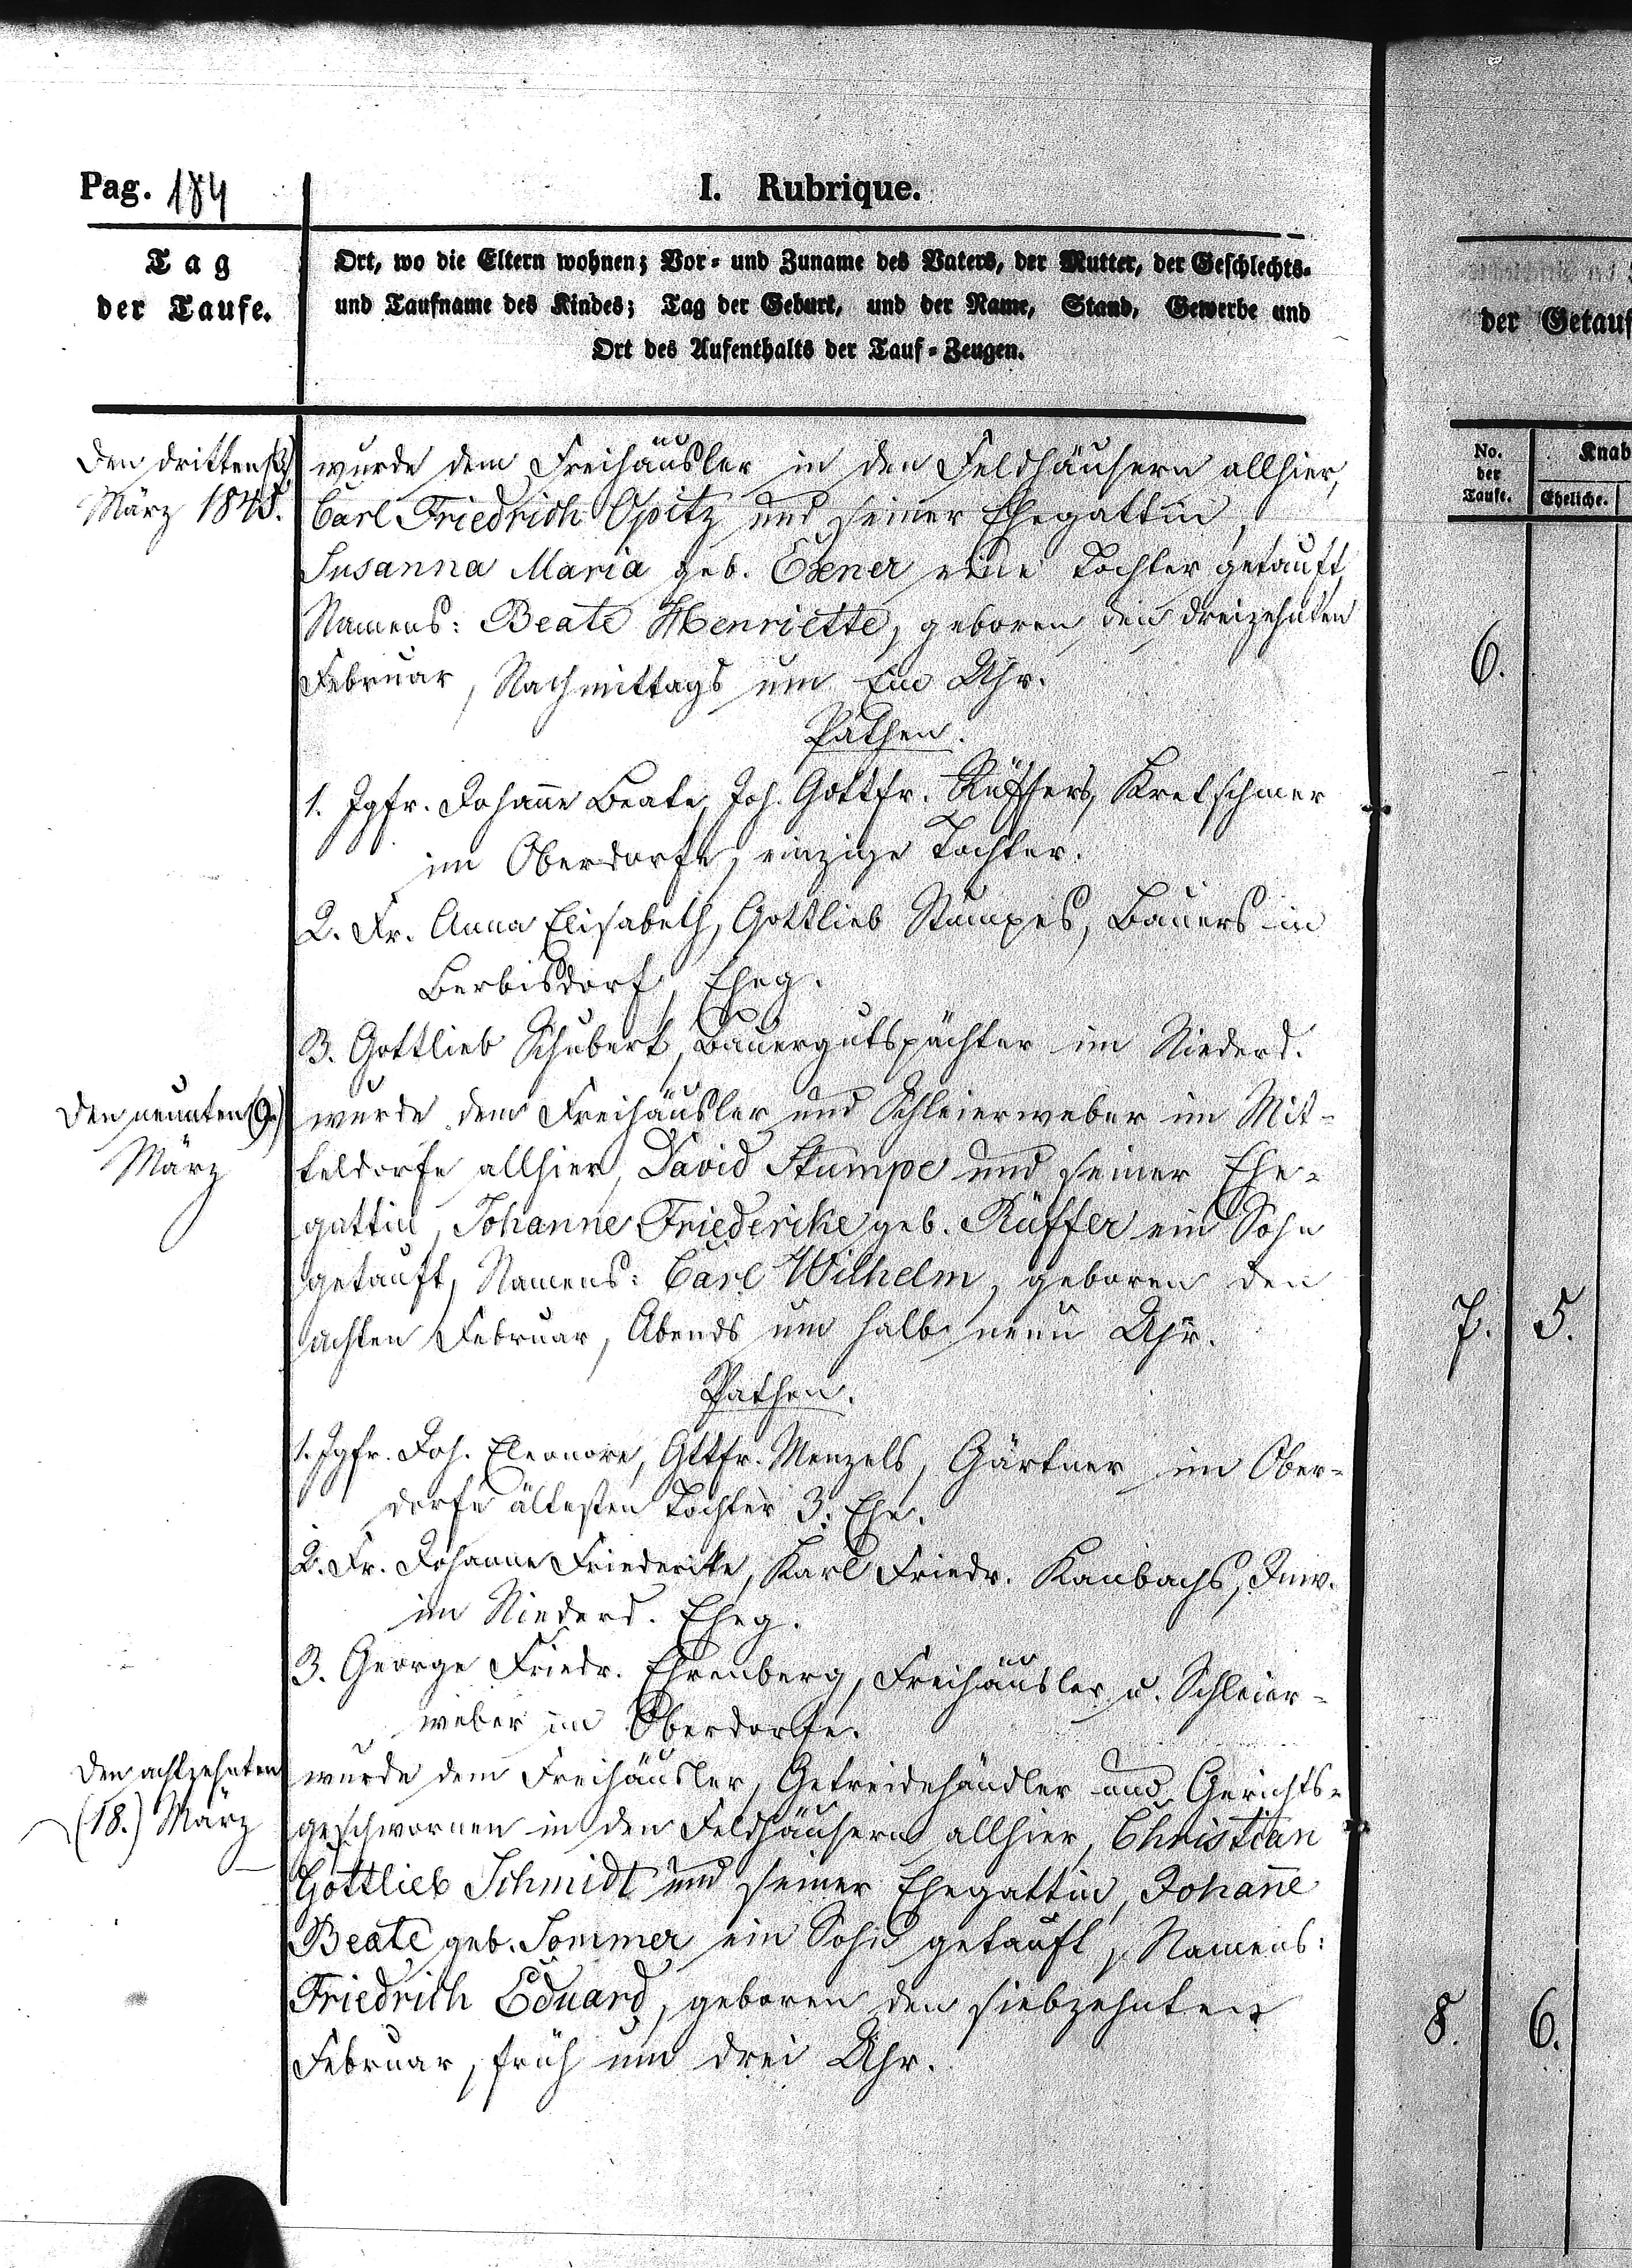 Pag. 184
I. Rubrique.
Tag
der Taufe.
Ort, wo die Eltern wohnen; Vor- und Zuname des Vaters, der Mutter, der Geschlechts-
und Taufname des Kindes; Tag der Geburt, und der Name, Stand, Gewerbe und
Ort des Aufenthalts der Tauf-Zeugen.
der Getauf
No.
der
Taufe.
Knab
Eheliche.
Den dritten (3.)
März 1845.
wurde dem Freihäusler in den Feldhäusern allhier,
Carl Friedrich Opitz und seiner Ehegattin,
Susanna Maria geb. Exner eine Tochter getauft,
Namens: Beate Henriette, geboren den dreizehnten
Februar, Nachmittags um Ein Uhr.
6.
Pathen.
1. Jgfr. Johanne Beate, Joh. Gottfr. Rüffers, Kretschmer
im Oberdorfe, einzige Tochter.
2. Fr. Anna Elisabeth, Gottlieb Stumpes, Bauers in
Berbisdorf, Eheg.
3. Gottlieb Schubert, Bauergutspächter im Niederd.
Den neunten (9.)
März
wurde dem Freihäusler und Schleierweber im Mit-
teldorfe allhier, David Stumpe und seiner Ehe-
gattin, Johanne Friederike geb. Rüffer ein Sohn
getauft, Namens: Carl Wilhelm, geboren den
achten Februar, Abends um halb neun Uhr.
7. 5.
Pathen.
1. Jgfr. Joh. Eleonore, Gttfr. Menzels, Gärtner im Ober-
dorfe ältesten Tochter 3. Ehe.
2. Fr. Johanne Friederike, Karl Friedr. Kaubachs, Inw.
im Niederd. Eheg.
3. George Friedr. Ehrenberg, Freihäusler u. Schleier-
weber im Oberdorfe.
Den achtzehnten
(18.) März
wurde dem Freihäusler, Getreidehändler und Gerichts-
geschwornen in den Feldhäusern allhier, Christian
Gottlieb Schmidt und seiner Ehegattin, Johan̄e
Beate geb. Sommer ein Sohn getauft, Namens:
Friedrich Eduard, geboren den siebzehnten
Februar, früh um drei Uhr.
8. 6.